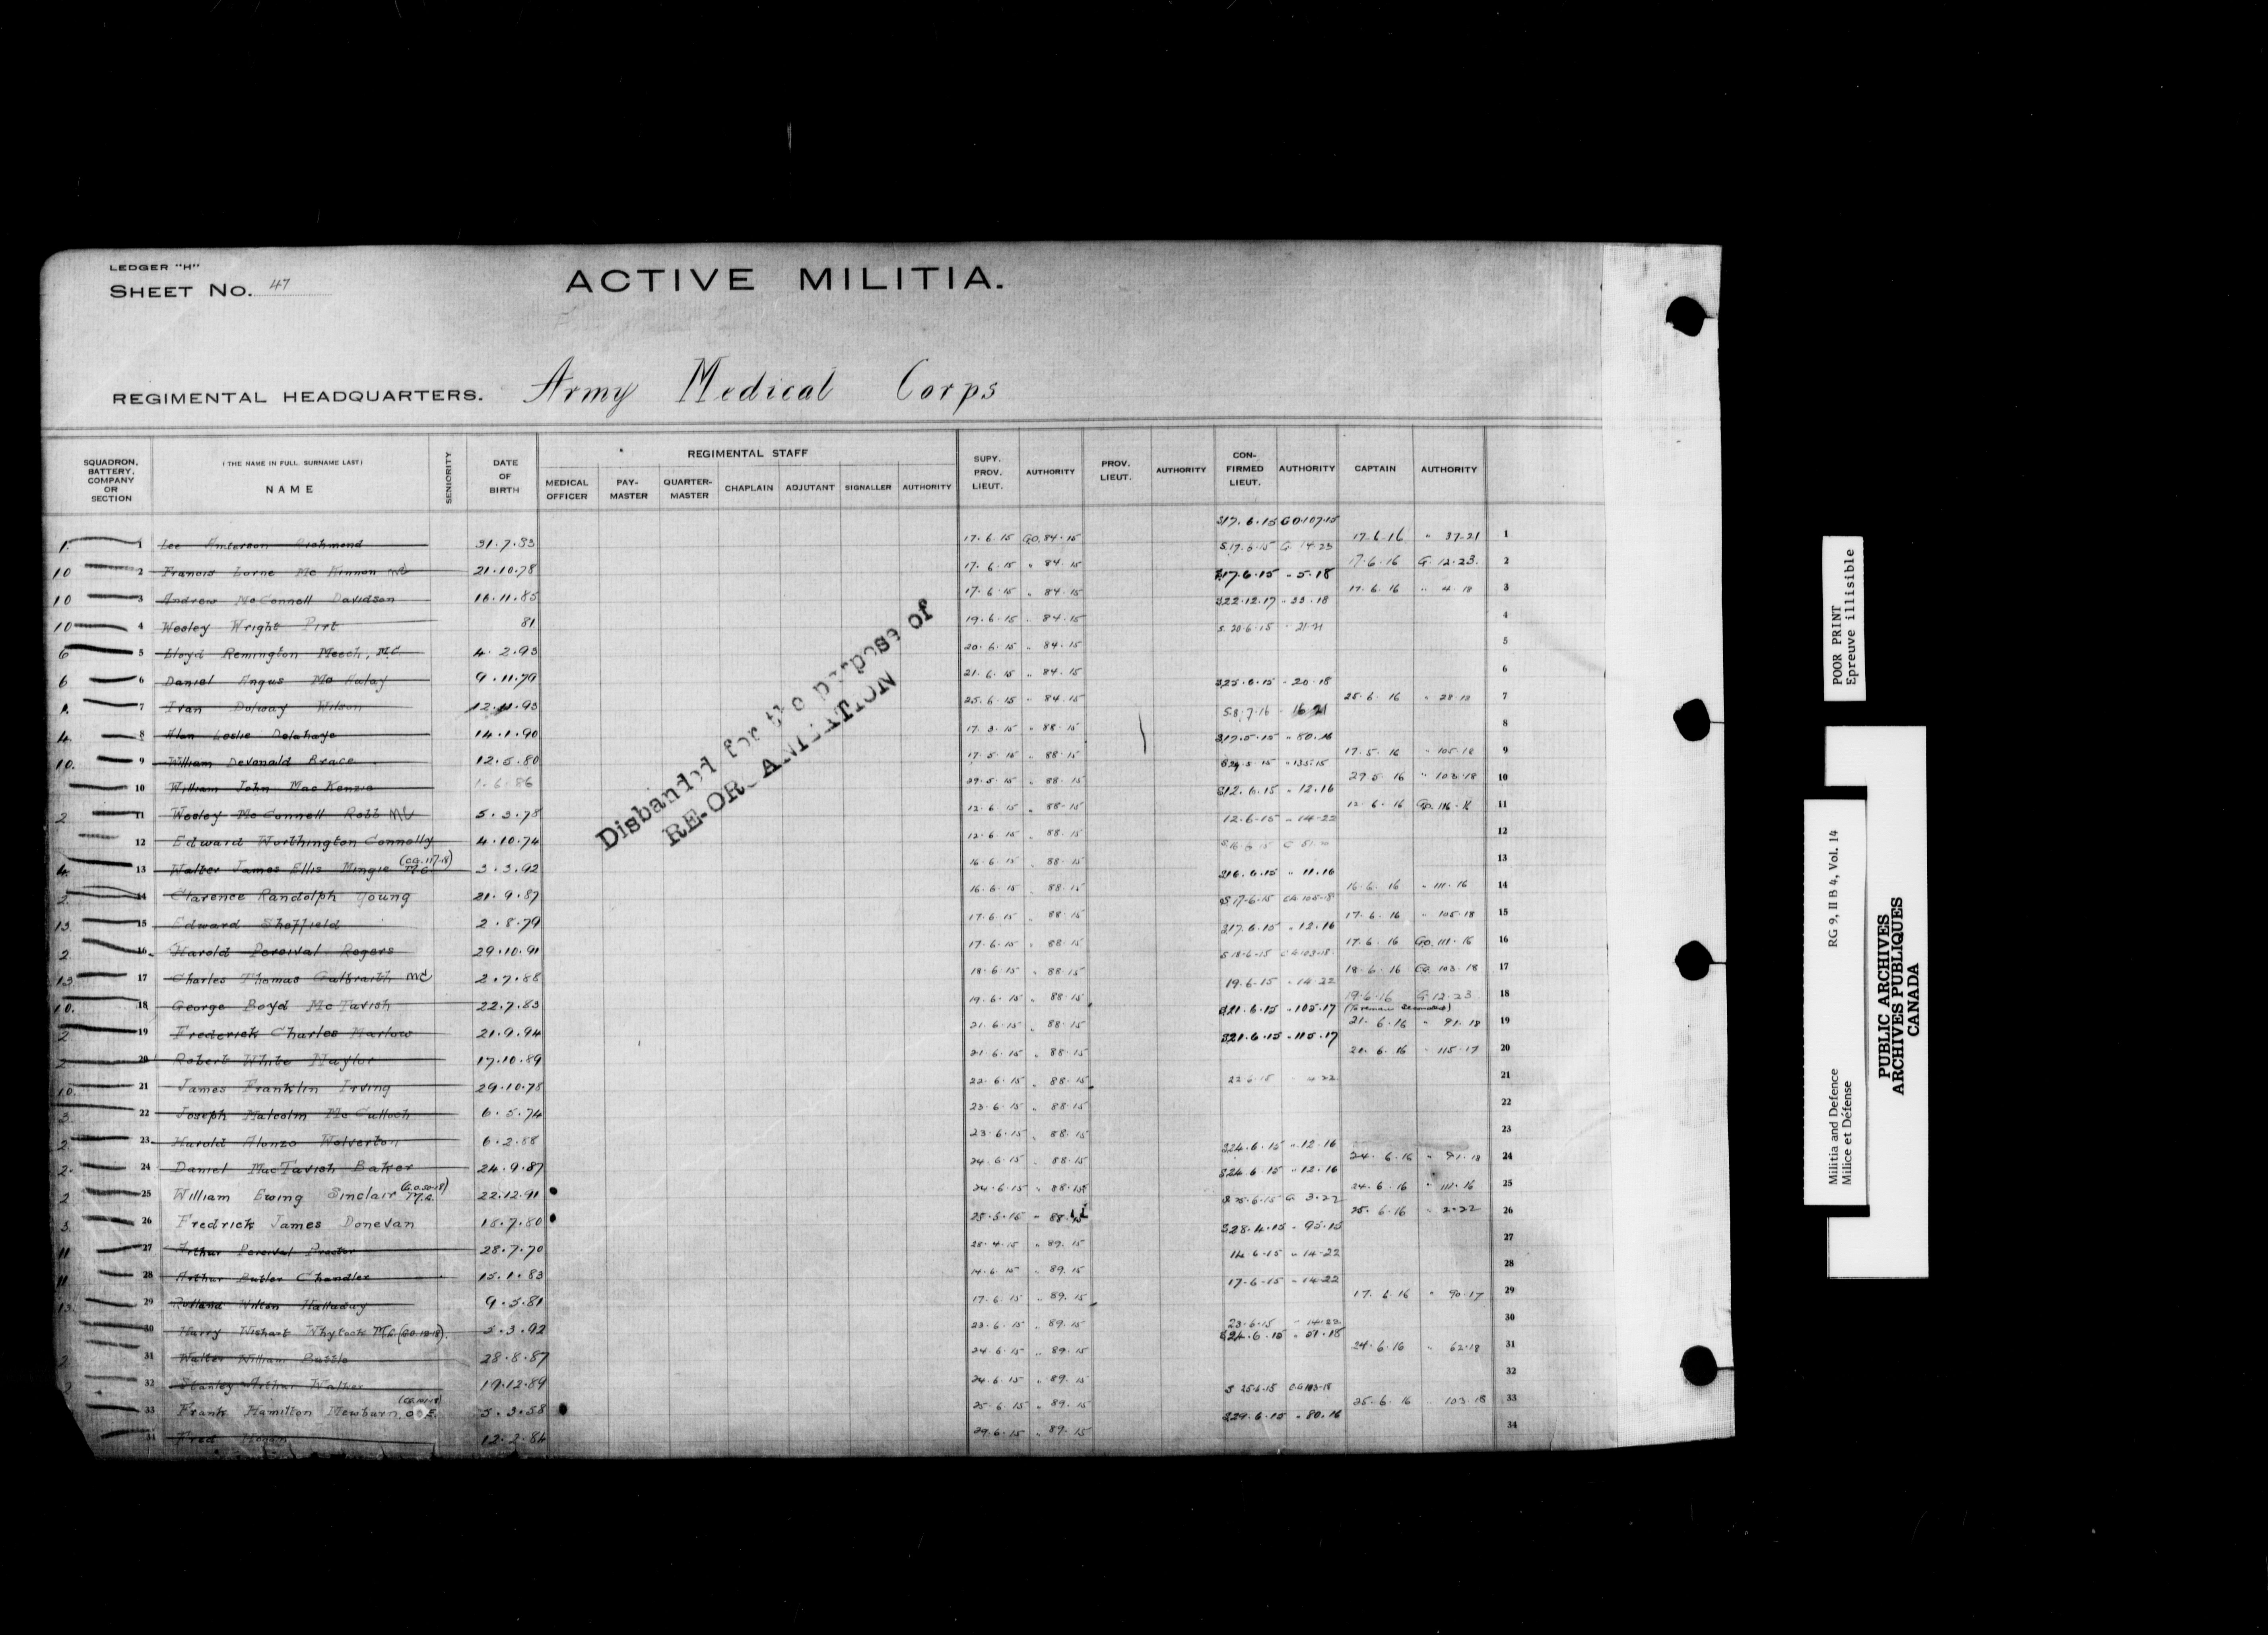 LEDGER "H"
SHEET No. 47
ACTIVE MILITIA.
REGIMENTAL HEADQUARTERS. Army Medical Corps
SQUADRON, BATTERY, COMPANY OR SECTION
(THE NAME IN FULL. SURNAME LAST) NAME
SENIORITY
DATE OF BIRTH
REGIMENTAL STAFF
MEDICAL OFFICER
PAY-MASTER
QUARTER-MASTER
CHAPLAIN
ADJUTANT
SIGNALLER
AUTHORITY
SUPY. PROV. LIEUT.
AUTHORITY
PROV. LIEUT.
AUTHORITY
CON-FIRMED LIEUT.
AUTHORITY
CAPTAIN
AUTHORITY
1 1 Lee Richmond 31.7.83 17.6.15 G.O. 84.15 17.6.15 G.O. 107.15 17.6.16 " 37-21 1
10 2 Francis Lorne Mc Kinnon 21.10.78 17.6.15 " 84.15 S.17.6.15 G. 14-23 17.6.16 G. 12.23. 2
10 3 Andrew McConnell Davidson 16.11.85 17.6.15 " 84.15 17.6.15 " 5.18 17.6.16 " 4.18 3
10 4 Wesley Wright Pirt 81 19.6.15 " 84.15 22.12.17 " 33.18 4
6 5 Lloyd Remington Meech, M.C. 4.2.93 20.6.15 " 84.15 S. 20.6.15 " 21.21 5
6 6 Daniel Angus Mc Aulay 9.11.79 21.6.15 " 84.15 6
1. 7 Ivan Dolway Wilson 12.11.93 25.6.15 " 84.15 25.6.15 " 20.18 25.6.16 " 28.18 7
4. 8 Alan Leslie Delahaye 14.1.90 17.3.15 " 88.15 S.8.7.16 " 16.21 8
10. 9 William Devonald Brace 12.5.80 17.5.15 " 88.15 17.5.15 " 80.16 17.5.16 " 105.18 9
10 William John Mac Kenzie 1.6.86 29.5.15 " 88.15 29.5.15 " 135.15 29.5.16 " 103.18 10
2 11 Wesley McConnell Robb MC 5.3.78 12.6.15 " 88.15 12.6.15 " 12.16 12.6.16 G.O. 116.16 11
12 Edward Worthington Connolly 4.10.74 12.6.15 " 88.15 12.6.15 " 14-22 12
4. 13 Walter James Ellis Mingie (C.G. 117.18) M.C. 3.3.92 16.6.15 " 88.15 13
2. 14 Clarence Randolph Young 21.9.87 16.6.15 " 88.15 16.6.15 " 11.16 16.6.16 " 111.16 14
13 15 Edward Sheffield 2.8.79 17.6.15 " 88.15 S17.6.15 C.G. 105.18 17.6.16 " 105.18 15
2. 16 Harold Percival Rogers 29.10.91 17.6.15 " 88.15 17.6.15 " 12.16 17.6.16 G.O. 111.16 16
13 17 Charles Thomas Galbraith MC 2.7.88 18.6.15 " 88.15 S 18.6.15 C.G. 103.18 18.6.16 C.G. 103.18 17
10. 18 George Boyd McTavish 22.7.83 19.6.15 " 88.15 19.6.15 " 14-22 19.6.16 G. 12.23 18
2. 19 Frederick Charles Marlow 21.9.94 21.6.15 " 88.15 21.6.15 " 105.17 (To remain Seconded) 21.6.16 " 91.18 19
2 20 Robert White Naylor 17.10.89 21.6.15 " 88.15 21.6.15 " 115.17 21.6.16 " 115.17 20
10. 21 James Franklin Irving 29.10.78 22.6.15 " 88.15 22.6.15 21
3. 22 Joseph Malcolm McCulloch 6.5.74 23.6.15 " 88.15 22
2. 23 Harold Alonzo Wolverton 6.2.88 23.6.15 " 88.15 23
2. 24 Daniel MacTavish Baker 24.9.87 24.6.15 " 88.15 24.6.15 " 12.16 24.6.16 " 91.18 24
2 25 William Ewing Sinclair (G.O. 50.18) M.C. 22.12.91 24.6.15 " 88.15 24.6.15 " 12.16 24.6.16 " 111.16 25
3. 26 Fredrick James Donevan 18.7.80 25.6.15 " 88.15 25.6.15 G. 3.22 25.6.16 " 2-22 26
11 27 Arthur Percival Procter 28.7.70 28.4.15 " 89.15 28.4.15 " 95.15 27
11 28 Arthur Butler Chandler 15.1.83 14.6.15 " 89.15 14.6.15 " 14-22 28
13 29 Rolland Wilton Halladay 9.5.81 17.6.15 " 89.15 17-6-15 " 14-22 17.6.16 " 90.17 29
30 Harry Wishart Whytock M.C. 5.3.92 23.6.15 " 89.15 23.6.15 " 14.22 30
2 31 Walter William Bartle 28.8.87 24.6.15 " 89.15 24.6.15 " 51.18 24.6.16 " 62.18 31
2 32 Stanley Arthur Walker 19.12.89 24.6.15 " 89.15 32
33 Frank Hamilton Mewburn, O.B.E. 5.3.58 25.6.15 " 89.15 S 25.6.15 C.G. 103.18 25.6.16 103.18 33
34 Fred Hogan 12.2.84 29.6.15 " 89.15 29.6.15 " 80.16 34
Disbanded for the purpose of
RE-ORGANIZATION
POOR PRINT
Epreuve illisible
RG 9, II B 4, Vol. 14
Militia and Defence
Milice et Défense
PUBLIC ARCHIVES
ARCHIVES PUBLIQUES
CANADA